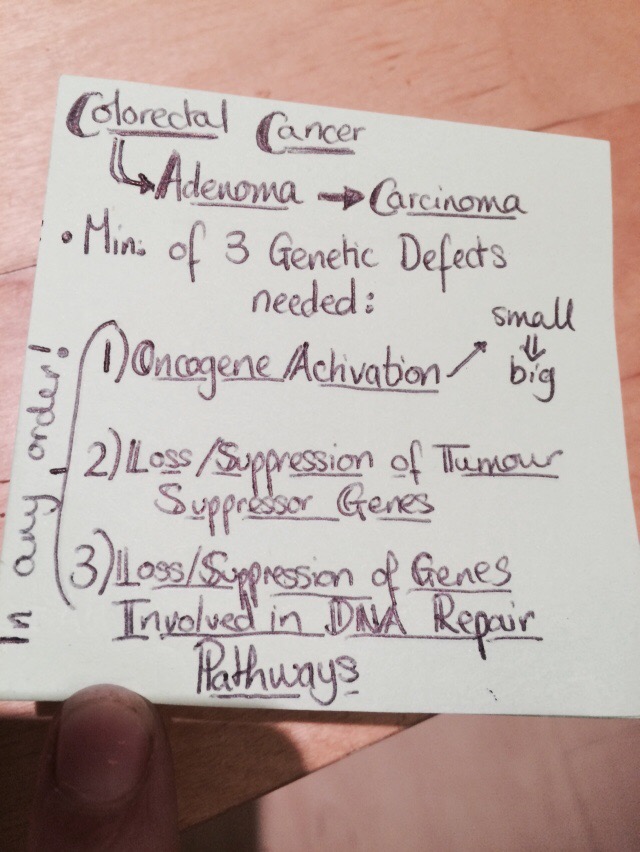 Colorectal Cancer
Adenoma → Carcinoma
• Min: of 3 Genetic Defects
needed:
small
⇓
big
1) Oncogene Activation ↗
2) Loss/Suppression of Tumour
Suppressor Genes
3) Loss/Suppression of Genes
Involved in DNA Repair
Pathways
In any order!